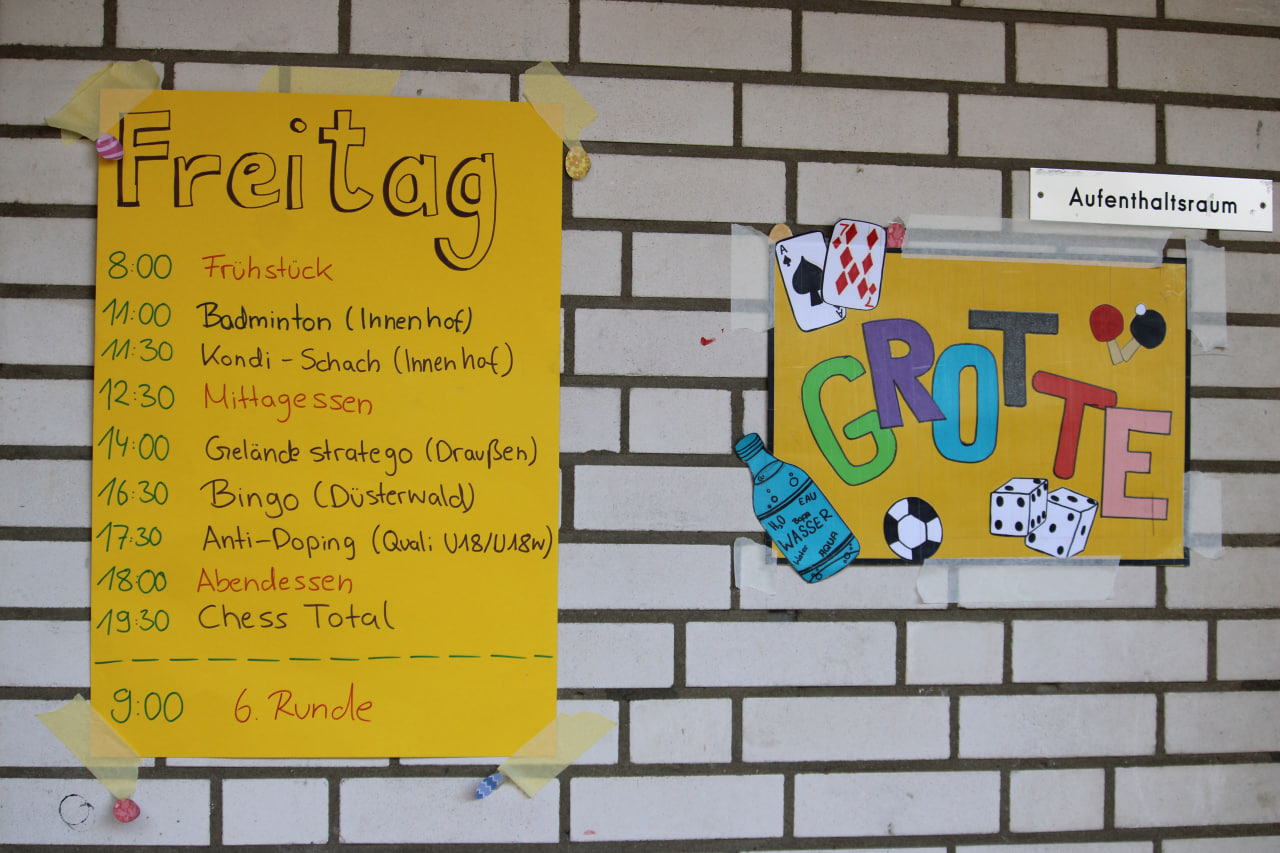 Freitag
8:00 Frühstück
11:00 Badminton (Innenhof)
11:30 Kondi-Schach (Innenhof)
12:30 Mittagessen
14:00 Geländestratego (Draußen)
16:30 Bingo (Düsterwald)
17:30 Anti-Doping (Quali U18/U18w)
18:00 Abendessen
19:30 Chess Total
9:00 6. Runde
Aufenthaltsraum
A
7
7
A
GROTTE
H₂O EAU
WASSER
Water AQUA